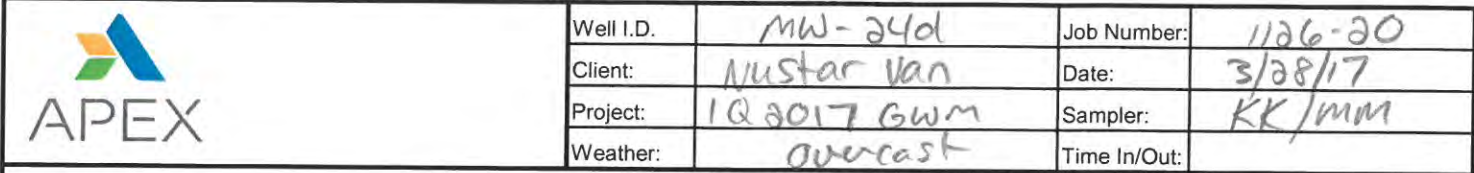 Well I.D. MW-24d Job Number: 1126-20
Client: Nustar Van Date: 3/28/17
APEX Project: 1Q 2017 GWM Sampler: KK/MM
Weather: Overcast Time In/Out: